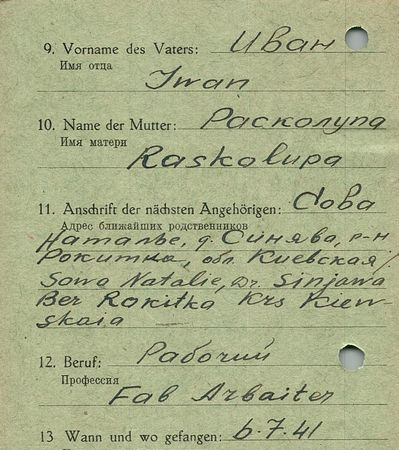 9. Vorname des Vaters: Иван
Имя отца
Iwan
10. Name der Mutter: Расколупа
Имя матери
Raskolupa
11. Anschrift der nächsten Angehörigen: Сова
Адрес ближайших родственников
Наталье, д. Синява, р-н
Рокитна, обл. Киевская/
Sowa Natalie, Dr. Sinjawa
Ber Rokitka Krs Kiew-
skaia
12. Beruf: Рабочий
Профессия
Fab Arbaiter
13 Wann und wo gefangen: 6.7.41